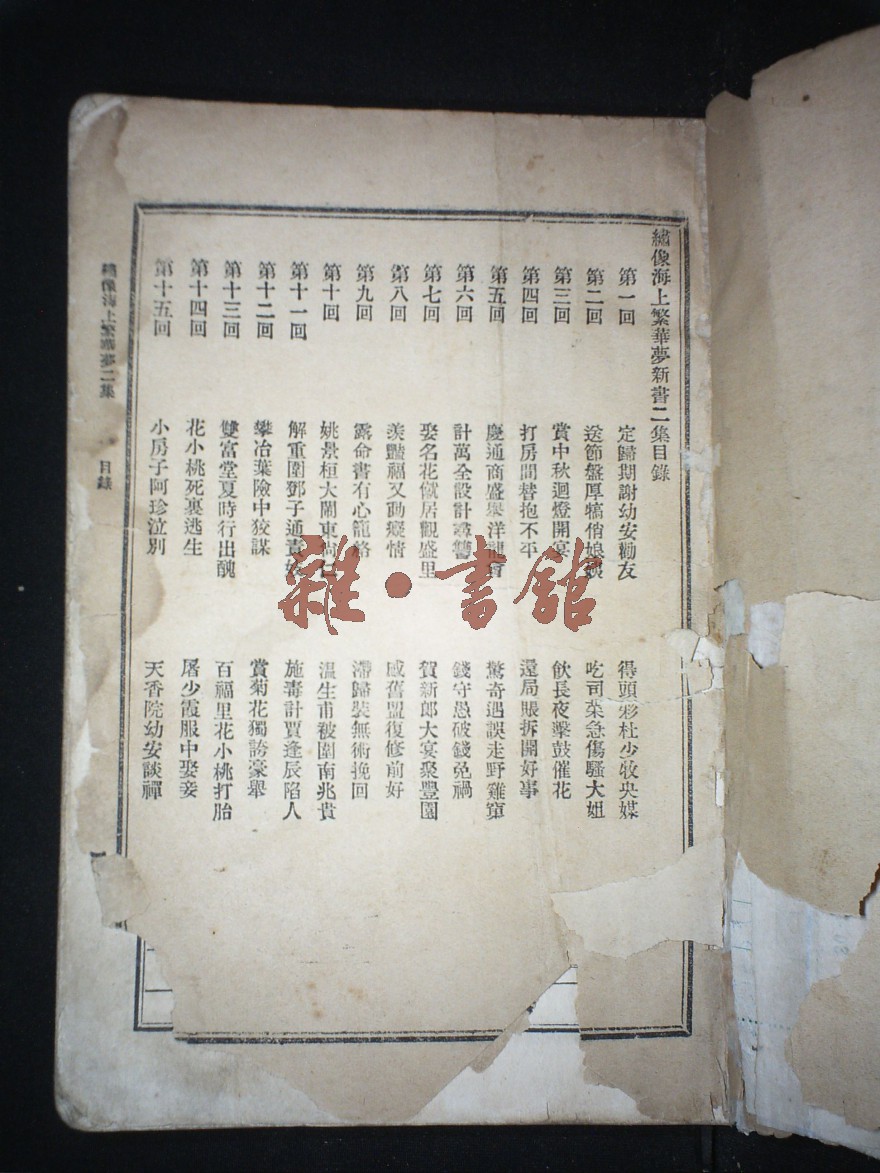 繡像海上繁華夢新書二集目錄
第一回 定歸期謝幼安勸友 得頭彩杜少牧央媒
第二回 送節盤厚犒俏娘姨 吃司菜急傷騷大姐
第三回 賞中秋迴燈開宴 飲長夜擊鼓催花
第四回 打房間替抱不平 還局賬拆開好事
第五回 慶通商盛舉洋龍會 驚奇遇誤走野雞窠
第六回 計萬全設計尋讐 錢守愚破錢免禍
第七回 娶名花僦居觀盛里 賀新郎大宴聚豐園
第八回 羨豔福又動癡情 感舊盟復修前好
第九回 露命書有心籠絡 滯歸裝無術挽回
第十回 姚景桓大鬧東尚仁 溫生甫被圍南兆貴
第十一回 解重圍鄧子通責 施毒計賈逢辰陷人
第十二回 攀冶葉險中狡謀 賞菊花獨誇豪舉
第十三回 雙富堂夏時行出醜 百福里花小桃打胎
第十四回 花小桃死裏逃生 屠少霞服中娶妾
第十五回 小房子阿珍泣別 天香院幼安談禪
繡像海上繁華夢二集 目錄
雜·書館